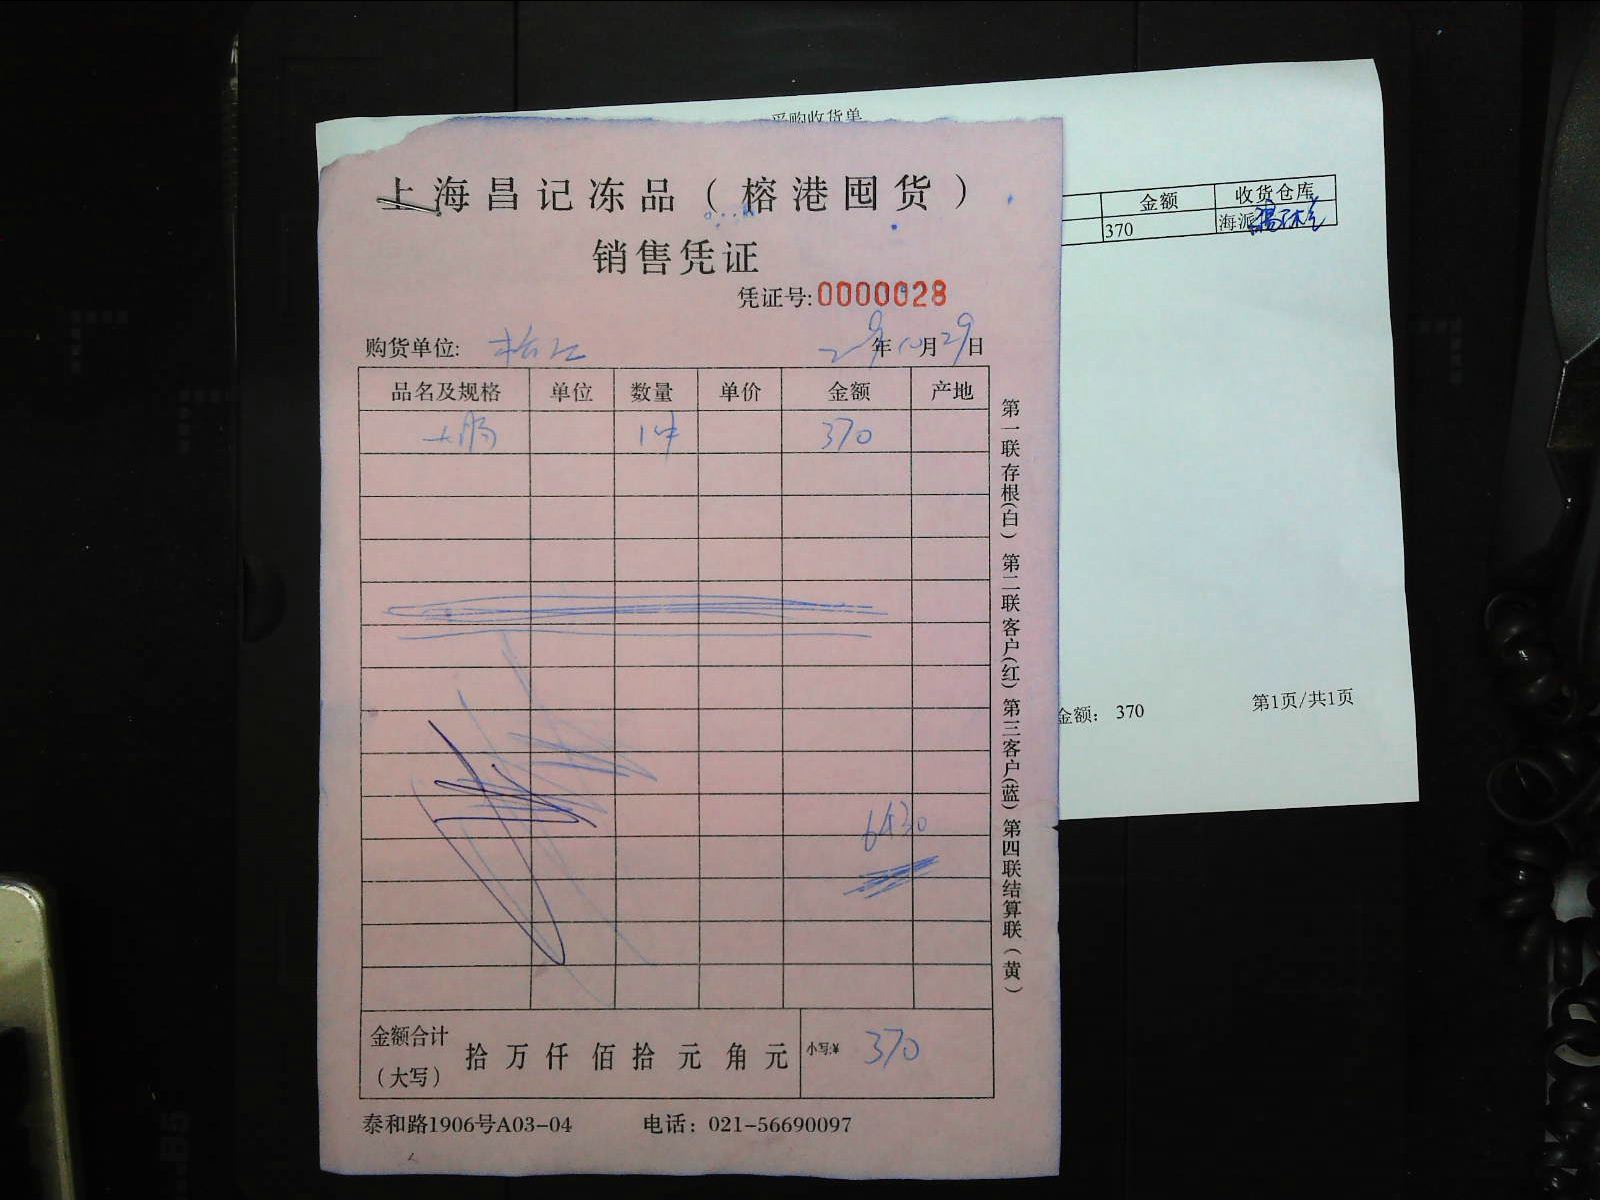 采购收货单
上海昌记冻品（榕港囤货）
销售凭证
凭证号:0000028
购货单位: 年10月29日
品名及规格 单位 数量 单价 金额 产地
大肠 1件 370
6430
金额合计（大写） 拾 万 仟 佰 拾 元 角 元 小写:¥ 370
泰和路1906号A03-04 电话：021-56690097
第一联存根(白) 第二联客户(红) 第三客户(蓝) 第四联结算联(黄)
金额 收货仓库
370 海派
金额： 370 第1页/共1页